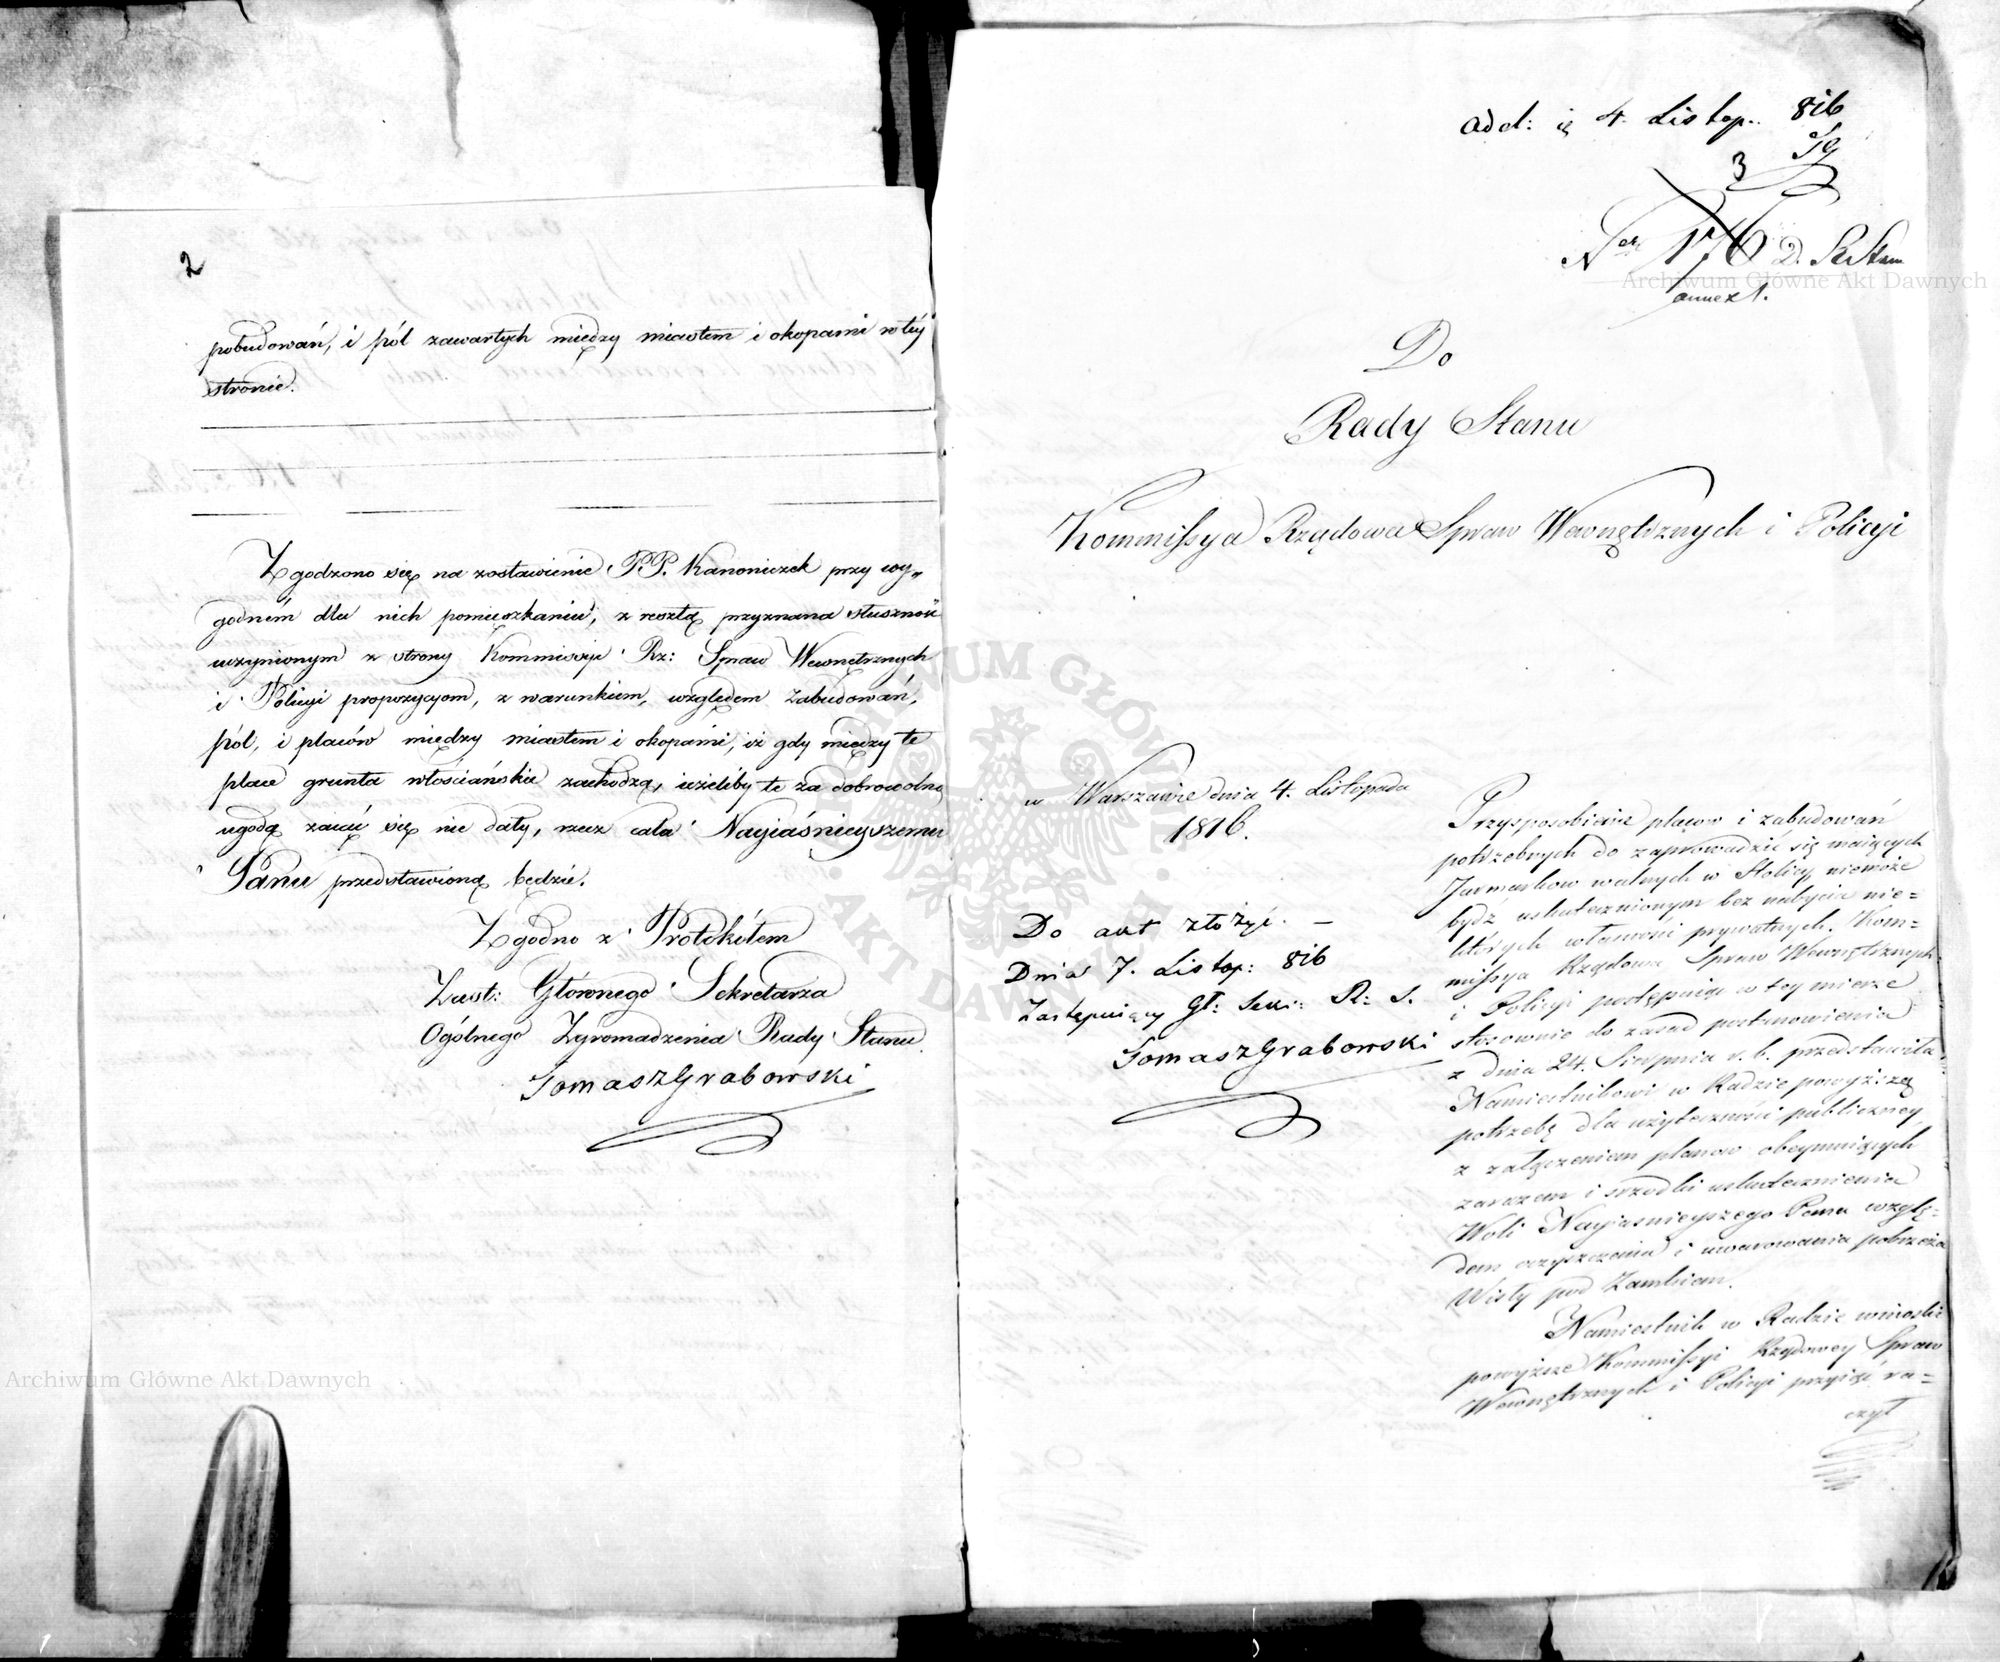 2
pobudowań, i pól zawartych między miastem i okopami w tey
stronie.
Zgodzono się na zostawienie PP. Kanoniczek przy wy„
godném dla nich pomieszkaniu, z resztą przyznana słuszność
uczynionym z strony Kommissyi Rz: Spraw Wewnętrznych
i Policyi propozycyom, z warunkiem, względem Zabudowań,
pól, i placów między miastem i okopami, iż gdy między te
place grunta włościańskie zachodzą, ieżeliby te za dobrowolną
ugodą zająć się nie dały, rzecz cała Nayiaśnieyszemu
Panu przedstawioną będzie.
Zgodno z Protokółem
Zast: Głównego Sekretarza
Ogólnego Zgromadzenia Rady Stanu
Tomasz Grabowski
add: 4 Listop. 816
3
Ner 176 D. R Stanu
annex 1.
Do
Rady Stanu
Kommissya Rządowa Spraw Wewnętrznych i Policyi
w Warszawie dnia 4. Listopada
1816.
Do akt złożyć. —
Dnia 7. Listop: 816
Zastępuiący Gł: Sekr: R: S.
Tomasz Grabowski
Przysposobienie placow i zabudowań
potrzebnych do zaprowadzić się maiących
Jarmarkow walnych w Stolicy niemoże
bydź uskutecznionym bez nabycia nie=
których własności prywatnych. Kom=
missya Rządowa Spraw Wewnętrznych
i Policyi postępuiąc w tey mierze
stosownie do zasad postanowienia
z dnia 24. Sierpnia r. b. przedstawiła
Namiestnikowi w Radzie powyższą
potrzebę dla użyteczności publiczney,
z załączeniem planow obeymuiących
zarazem i srzodki uskutecznienia
Woli Nayiasnieyszego Pana wzglę=
dem oczyszczenia i uwarowania pobrzeża
Wisły pod Zamkiem.
Namiestnik w Radzie wnioski
powyższe Kommissyi Rządowey Spraw
Wewnętrznych i Policyi przyiąć ra=
czył
Archiwum Główne Akt Dawnych
Archiwum Główne Akt Dawnych
ARCHIWUM GŁÓWNE AKT DAWNYCH